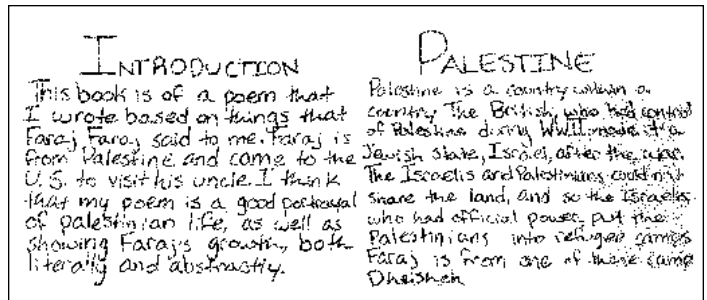 INTRODUCTION
This book is of a poem that
I wrote based on things that
Faraj Faraj said to me. Faraj is
from Palestine and came to the
U.S. to visit his uncle. I think
that my poem is a good portrayal
of palestinian life, as well as
showing Faraj's growth, both
literally and abstractly.
PALESTINE
Palestine is a country within a
country. The British, who had control
of Palestine during WWII made it a
Jewish State, Israel, after the war.
The Israelis and Palestinians could not
share the land, and so the Israelis
who had official power, put the
Palestinians into refugee camps
Faraj is from one of these camp
Dheisheh